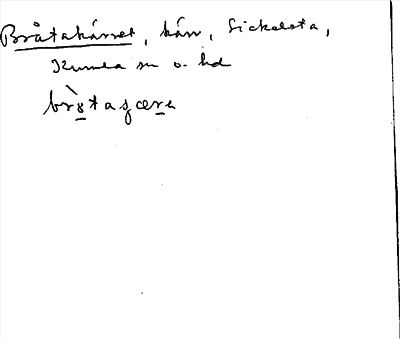 Bråtakärret, kärr, Sickelsta,
Kumla sn o. hd
brὸtaɟære